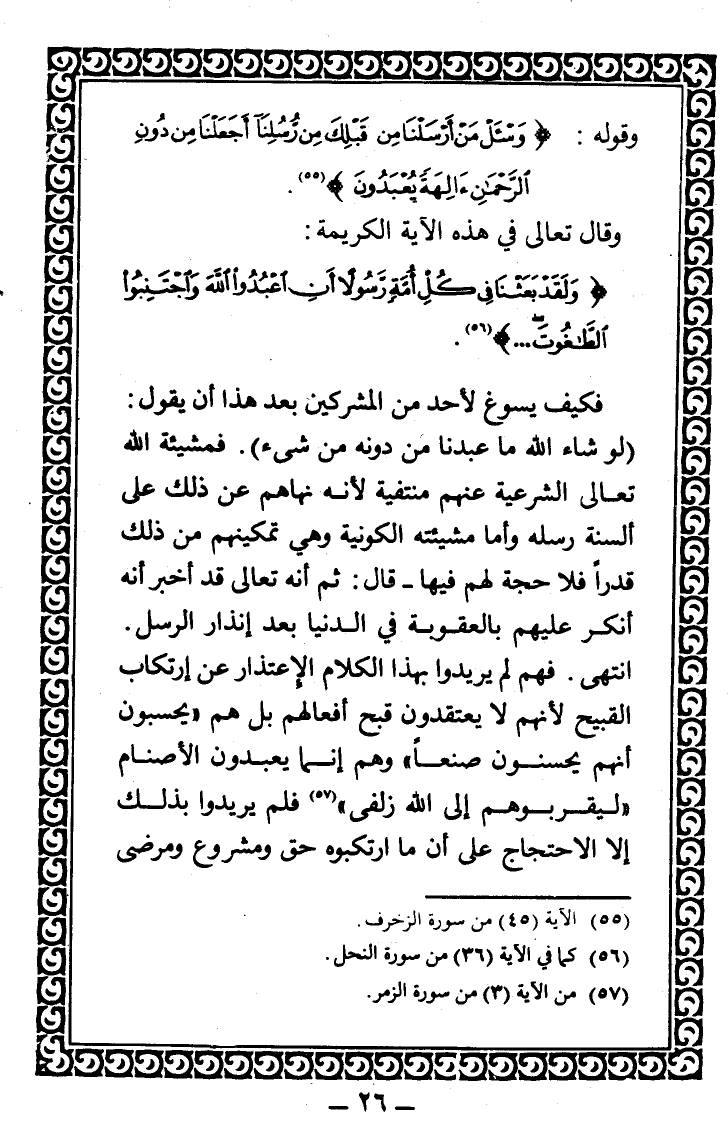 وقوله : ﴿ وَسْـَٔلْ مَنْ أَرْسَلْنَا مِن قَبْلِكَ مِن رُّسُلِنَآ أَجَعَلْنَا مِن دُونِ
ٱلرَّحْمَٰنِ ءَالِهَةً يُعْبَدُونَ ﴾(٥٥) .
وقال تعالى في هذه الآية الكريمة :
﴿ وَلَقَدْ بَعَثْنَا فِي كُلِّ أُمَّةٍ رَّسُولًا أَنِ ٱعْبُدُواْ ٱللَّهَ وَٱجْتَنِبُواْ
ٱلطَّٰغُوتَۖ ... ﴾(٥٦) .
فكيف يسوغ لأحد من المشركين بعد هذا أن يقول :
(لو شاء الله ما عبدنا من دونه من شىء) . فمشيئة الله
تعالى الشرعية عنهم منتفية لأنه نهاهم عن ذلك على
ألسنة رسله وأما مشيئته الكونية وهي تمكينهم من ذلك
قدراً فلا حجة لهم فيها ـ قال : ثم أنه تعالى قد أخبر أنه
أنكر عليهم بالعقوبة في الدنيا بعد إنذار الرسل .
انتهى . فهم لم يريدوا بهذا الكلام الإعتذار عن إرتكاب
القبيح لأنهم لا يعتقدون قبح أفعالهم بل هم «يحسبون
أنهم يحسنون صنعاً» وهم إنما يعبدون الأصنام
«ليقربوهم إلى الله زلفى»(٥٧) فلم يريدوا بذلك
إلا الاحتجاج على أن ما ارتكبوه حق ومشروع ومرضى
(٥٥) الآية (٤٥) من سورة الزخرف .
(٥٦) كما في الآية (٣٦) من سورة النحل .
(٥٧) من الآية (٣) من سورة الزمر .
ـ ٢٦ ـ